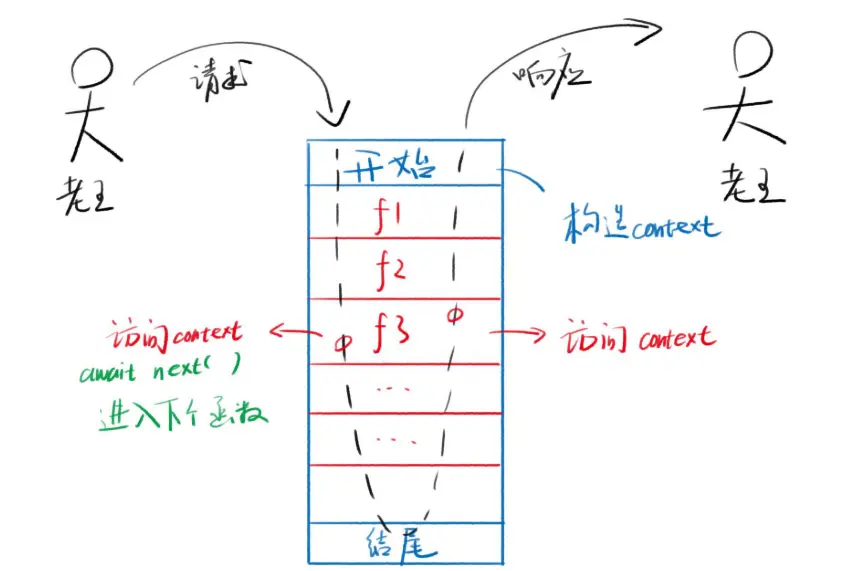 请求
响应
老王
老王
开始
构造context
f1
f2
f3
访问context
await next()
进入下个函数
访问context
...
...
结尾